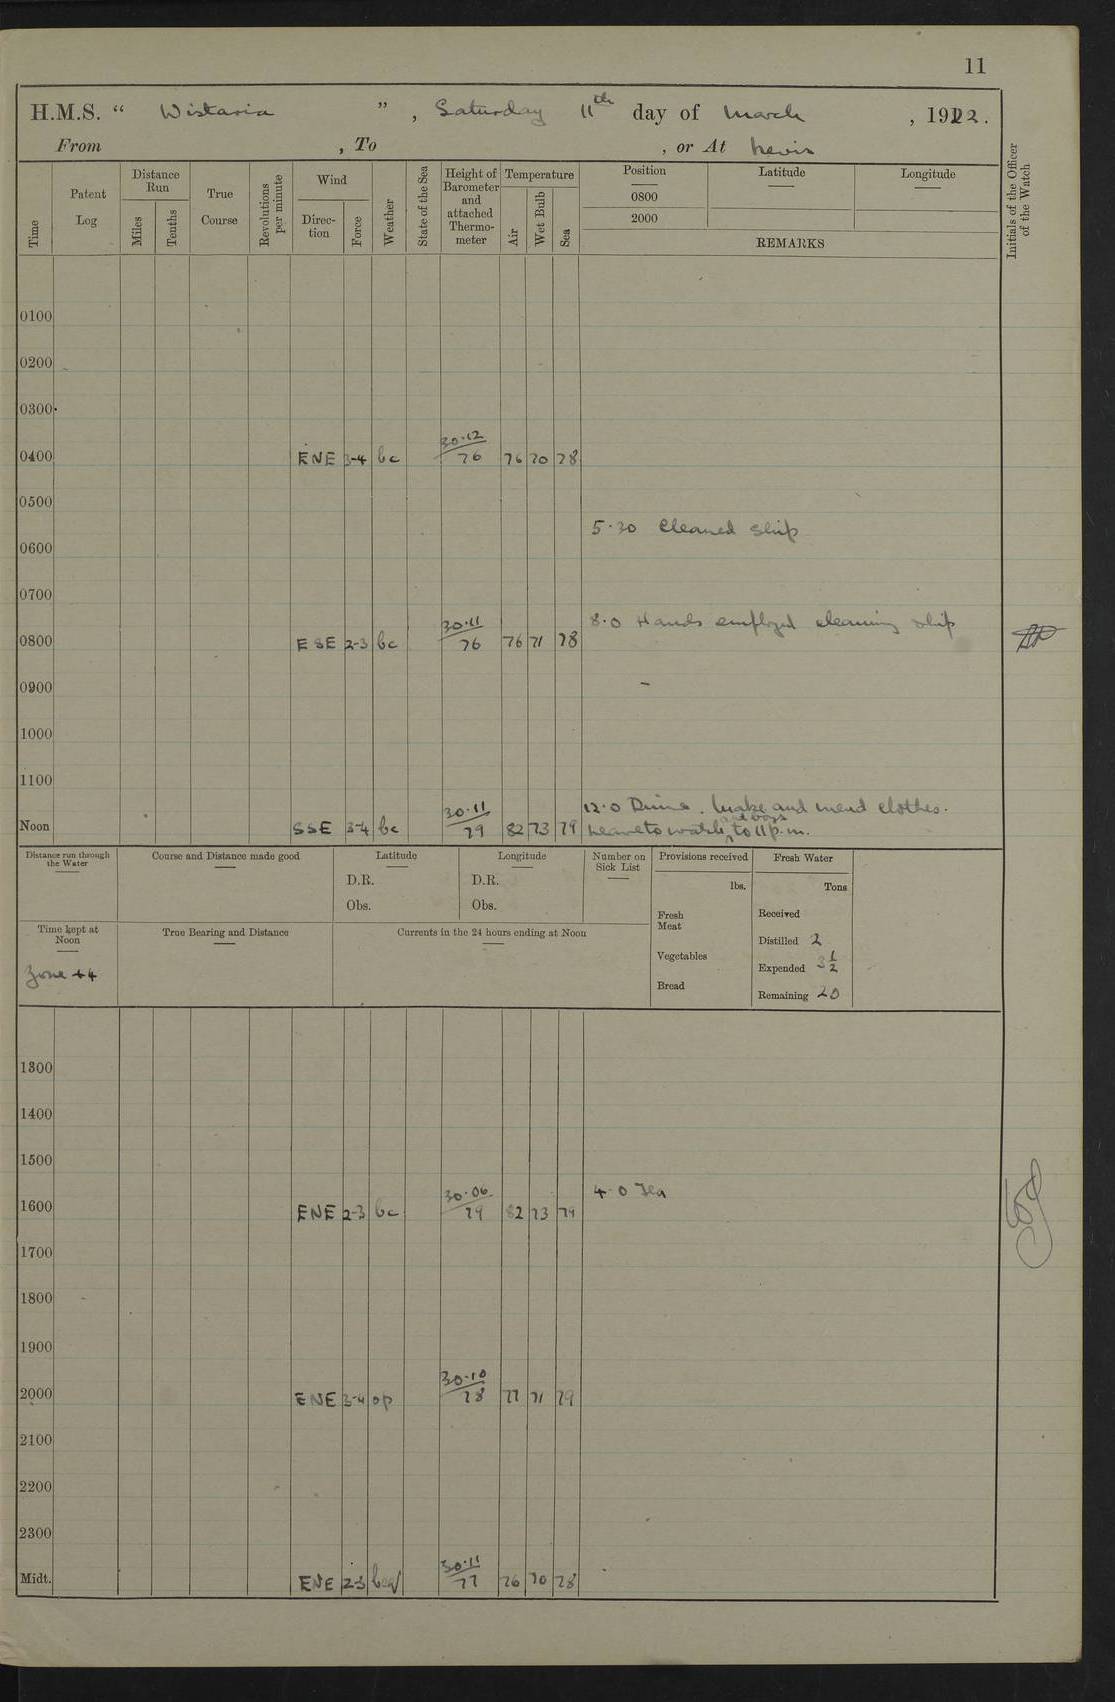 11
H.M.S. “ Wistaria ”, Saturday 11th day of March, 1922.
From , To , or At Nevis
Time
Patent Log
Distance Run
Miles
Tenths
True Course
Revolutions per minute
Wind
Direc-tion
Force
Weather
State of the Sea
Height of Barometer and attached Thermo-meter
Temperature
Air
Wet Bulb
Sea
Position
0800
2000
Latitude
Longitude
REMARKS
Initials of the Officer of the Watch
0100
0200
0300
0400 ENE 3-4 bc 30.12/76 76 70 78
0500
5.30 Cleaned Ship
0600
0700
8.0 Hands employed cleaning ship
0800 ESE 2-3 bc 30.11/76 76 71 78
0900
1000
1100
12.0 Dinner. Make and mend clothes.
Noon SSE 3-4 bc 30.11/79 82 73 79 Leave to watch and boys to 11 p.m.
Distance run through the Water
Course and Distance made good
Latitude
D.R.
Obs.
Longitude
D.R.
Obs.
Number on Sick List
Provisions received
lbs.
Fresh Meat
Vegetables
Bread
Fresh Water
Tons
Received
Distilled 2
Expended 3 1/2
Remaining 20
Time kept at Noon
Zone +4
True Bearing and Distance
Currents in the 24 hours ending at Noon
1300
1400
1500
4.0 Tea
1600 ENE 2-3 bc 30.06/79 82 73 79
1700
1800
1900
2000 ENE 3-4 op 30.10/78 77 71 79
2100
2200
2300
Midt. ENE 2-3 30.11/77 76 70 78